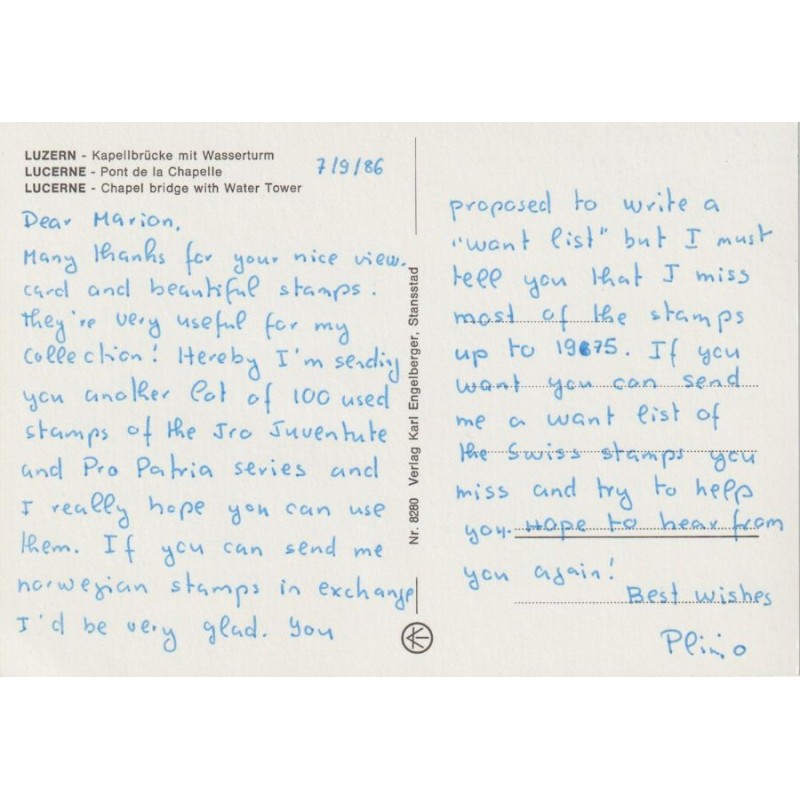 LUZERN - Kapellbrücke mit Wasserturm
LUCERNE - Pont de la Chapelle
LUCERNE - Chapel bridge with Water Tower
7/9/86
Dear Marion,
Many thanks for your nice view.
card and beautiful stamps.
They're very useful for my
collection! Hereby I'm sending
you another lot of 100 used
stamps of the Jro Juventute
and Pro Patria series and
I really hope you can use
them. If you can send me
norwegian stamps in exchange
I'd be very glad. You
Nr. 8280 Verlag Karl Engelberger, Stansstad
proposed to write a
"want list" but I must
tell you that I miss
most of the stamps
up to 1975. If you
want you can send
me a want list of
the Swiss stamps you
miss and try to help
you. Hope to hear from
you again!
Best wishes
Plinio